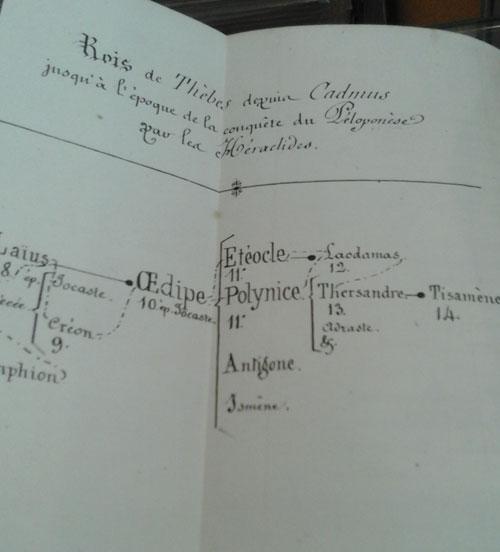 Rois de Thèbes depuis Cadmus
jusqu'à l'époque de la conquête du Péloponèse
par les Héraclides.
Laïus
8. 1° ép. Jocaste.
Créon
9.
mphion
Œdipe
10. ép. Jocaste.
Etéocle
11.
Polynice
11.
Antigone.
Ismène.
Laodamas.
12.
Thersandre
13.
Adraste.
Tisamène
14.